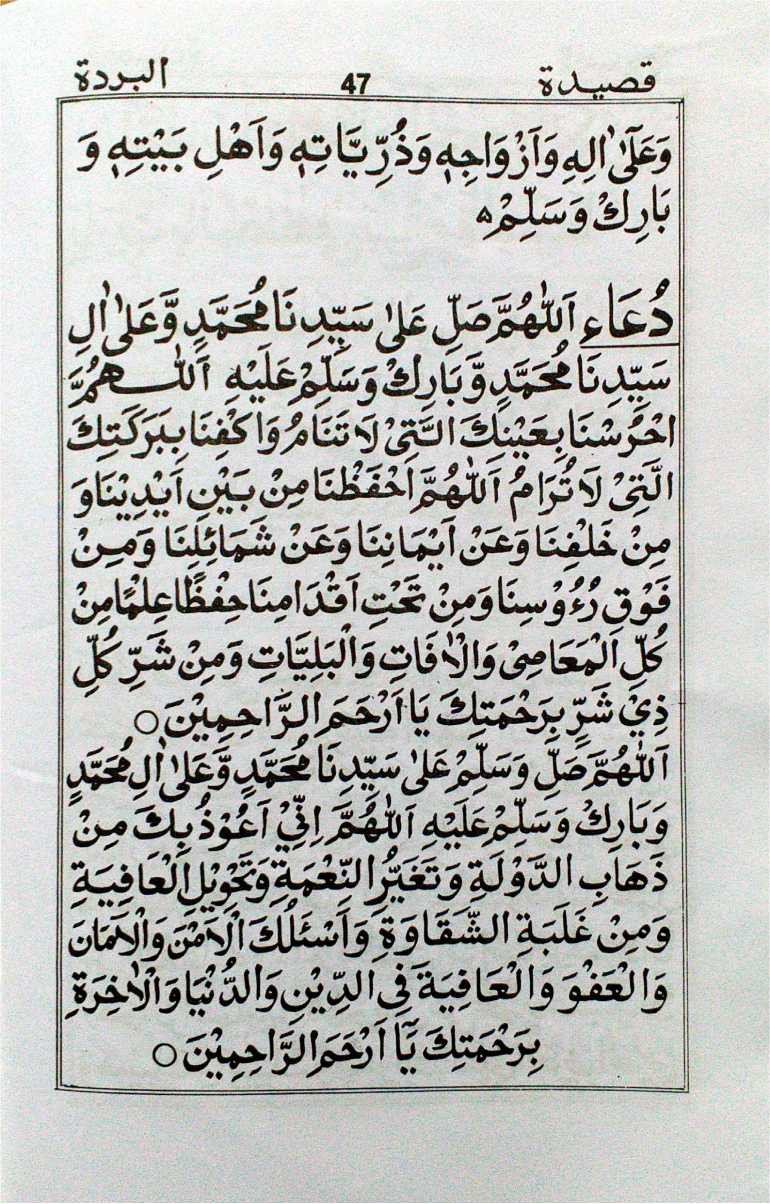 قصيدة 47 البردة
وَعَلٰٓى اٰلِهٖ وَاَزْوَاجِهٖ وَذُرِّيَّاتِهٖ وَاَهْلِ بَيْتِهٖ وَ
بَارِكْ وَسَلِّمْ ه
دُعَاء اَللّٰهُمَّ صَلِّ عَلٰى سَيِّدِنَا مُحَمَّدٍ وَّعَلٰى اٰلِ
سَيِّدِنَا مُحَمَّدٍ وَّبَارِكْ وَسَلِّمْ عَلَيْهِ اَللّٰهُمَّ
احْرُسْنَا بِعَيْنِكَ الَّتِيْ لَا تَنَامُ وَاكْفِنَا بِبَرَكَتِكَ
الَّتِيْ لَا تُرَامُ اَللّٰهُمَّ احْفَظْنَا مِنْ بَيْنِ اَيْدِيْنَا وَ
مِنْ خَلْفِنَا وَعَنْ اَيْمَانِنَا وَعَنْ شَمَائِلِنَا وَمِنْ
فَوْقِ رُءُوْسِنَا وَمِنْ تَحْتِ اَقْدَامِنَا حِفْظًا عِلْمًا مِنْ
كُلِّ الْمَعَاصِيْ وَالْاٰفَاتِ وَالْبَلِيَّاتِ وَمِنْ شَرِّ كُلِّ
ذِيْ شَرٍّ بِرَحْمَتِكَ يَا اَرْحَمَ الرَّاحِمِيْنَ ○
اَللّٰهُمَّ صَلِّ وَسَلِّمْ عَلٰى سَيِّدِنَا مُحَمَّدٍ وَّعَلٰى اٰلِ مُحَمَّدٍ
وَبَارِكْ وَسَلِّمْ عَلَيْهِ اَللّٰهُمَّ اِنِّيْ اَعُوْذُ بِكَ مِنْ
ذَهَابِ الدَّوْلَةِ وَتَغَيُّرِ النِّعْمَةِ وَتَحْوِيْلِ الْعَافِيَةِ
وَمِنْ غَلَبَةِ الشَّقَاوَةِ وَاَسْئَلُكَ الْاَمْنَ وَالْاَمَانَ
وَالْعَفْوَ وَالْعَافِيَةَ فِي الدِّيْنِ وَالدُّنْيَا وَالْاٰخِرَةِ
بِرَحْمَتِكَ يَآ اَرْحَمَ الرَّاحِمِيْنَ ○